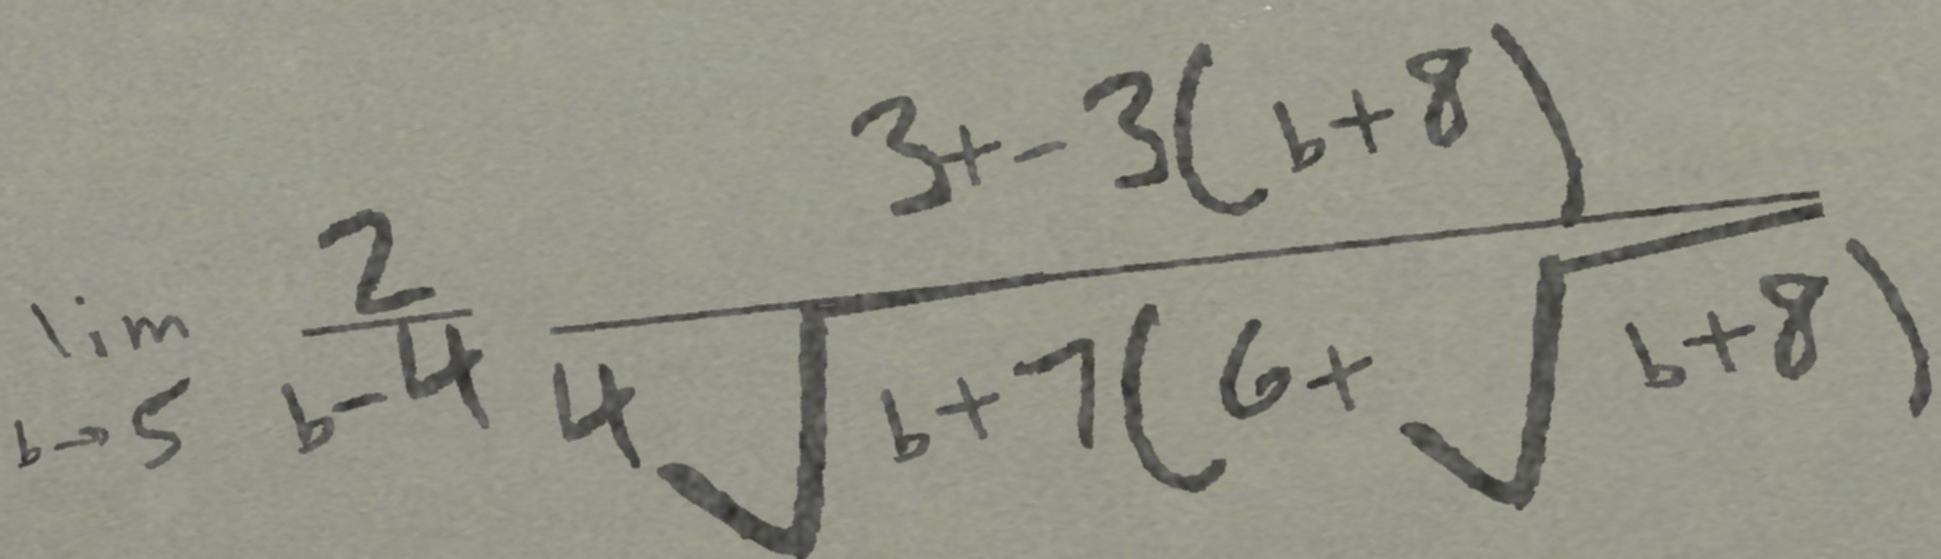 \lim_{b \to 5} \frac{2}{b-4} \frac{3+-3(b+8)}{4\sqrt{b+7}(6+\sqrt{b+8})}